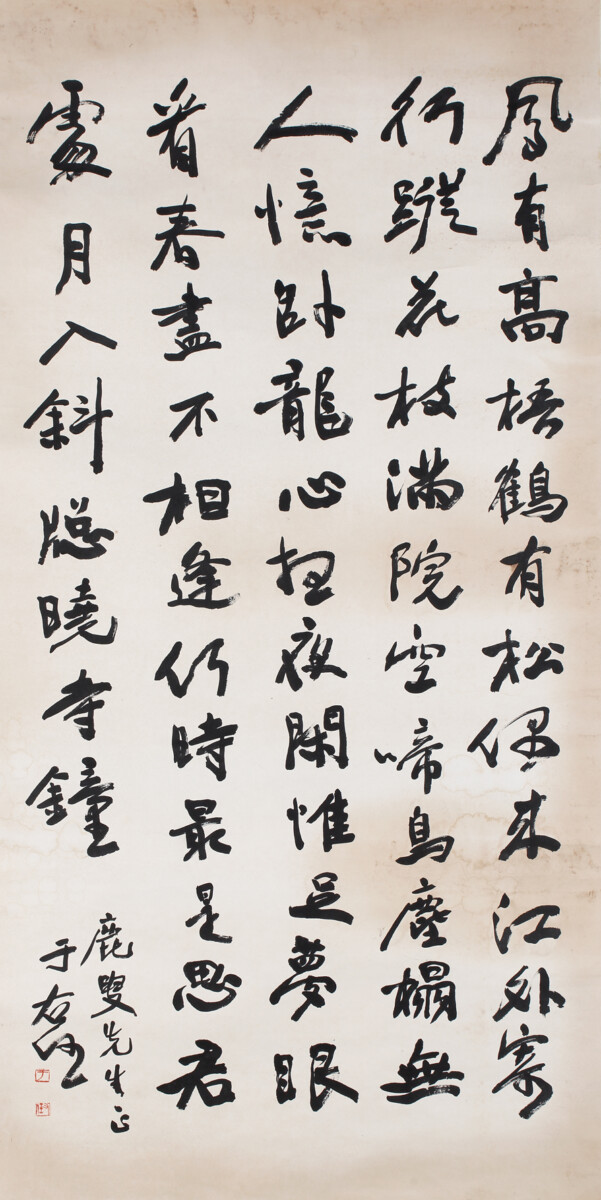 鳳有高梧鶴有松偶來江外寄
行蹤花枝滿院空啼鳥塵榻無
人憶臥龍心想夜閑惟足夢眼
看春盡不相逢何時最是思君
處月入斜牕曉寺鐘
鹿叟先生正
于右任